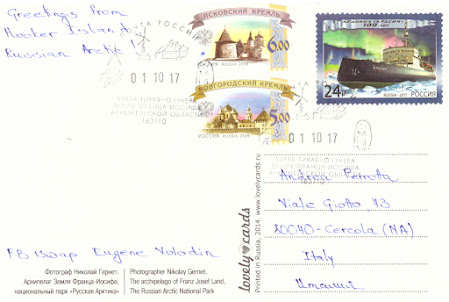 Greetings from
Hooker Island,
Russian Arctic!
ПОЧТА РОССИИ
01 10 17
БУХТА ТИХАЯ О. ГУКЕРА
ЗЕМЛЯ ФРАНЦА-ИОСИФА
АРХАНГЕЛЬСКОЙ ОБЛАСТИ
163110
ПСКОВСКИЙ КРЕМЛЬ
6.00
РОССИЯ RUSSIA 2009
НОВГОРОДСКИЙ КРЕМЛЬ
5.00
РОССИЯ RUSSIA 2009
100 ЛЕТ
24р
RUSSIA 2017 РОССИЯ
01 10 17
БУХТА ТИХАЯ О. ГУКЕРА
ЗЕМЛЯ ФРАНЦА-ИОСИФА
АРХАНГЕЛЬСКОЙ ОБЛАСТИ
163110
Andrea Perrotta
Viale Giotto, 43
80040-Cercola (NA)
Italy
Италия
lovely cards
Printed in Russia, 2014. www.lovelycards.ru
Eugene Volodin
Фотограф Николай Гернет.
Архипелаг Земля Франца-Иосифа,
национальный парк «Русская Арктика»
Photographer Nikolay Gernet.
The archipelago of Franz Josef Land,
The Russian Arctic National Park